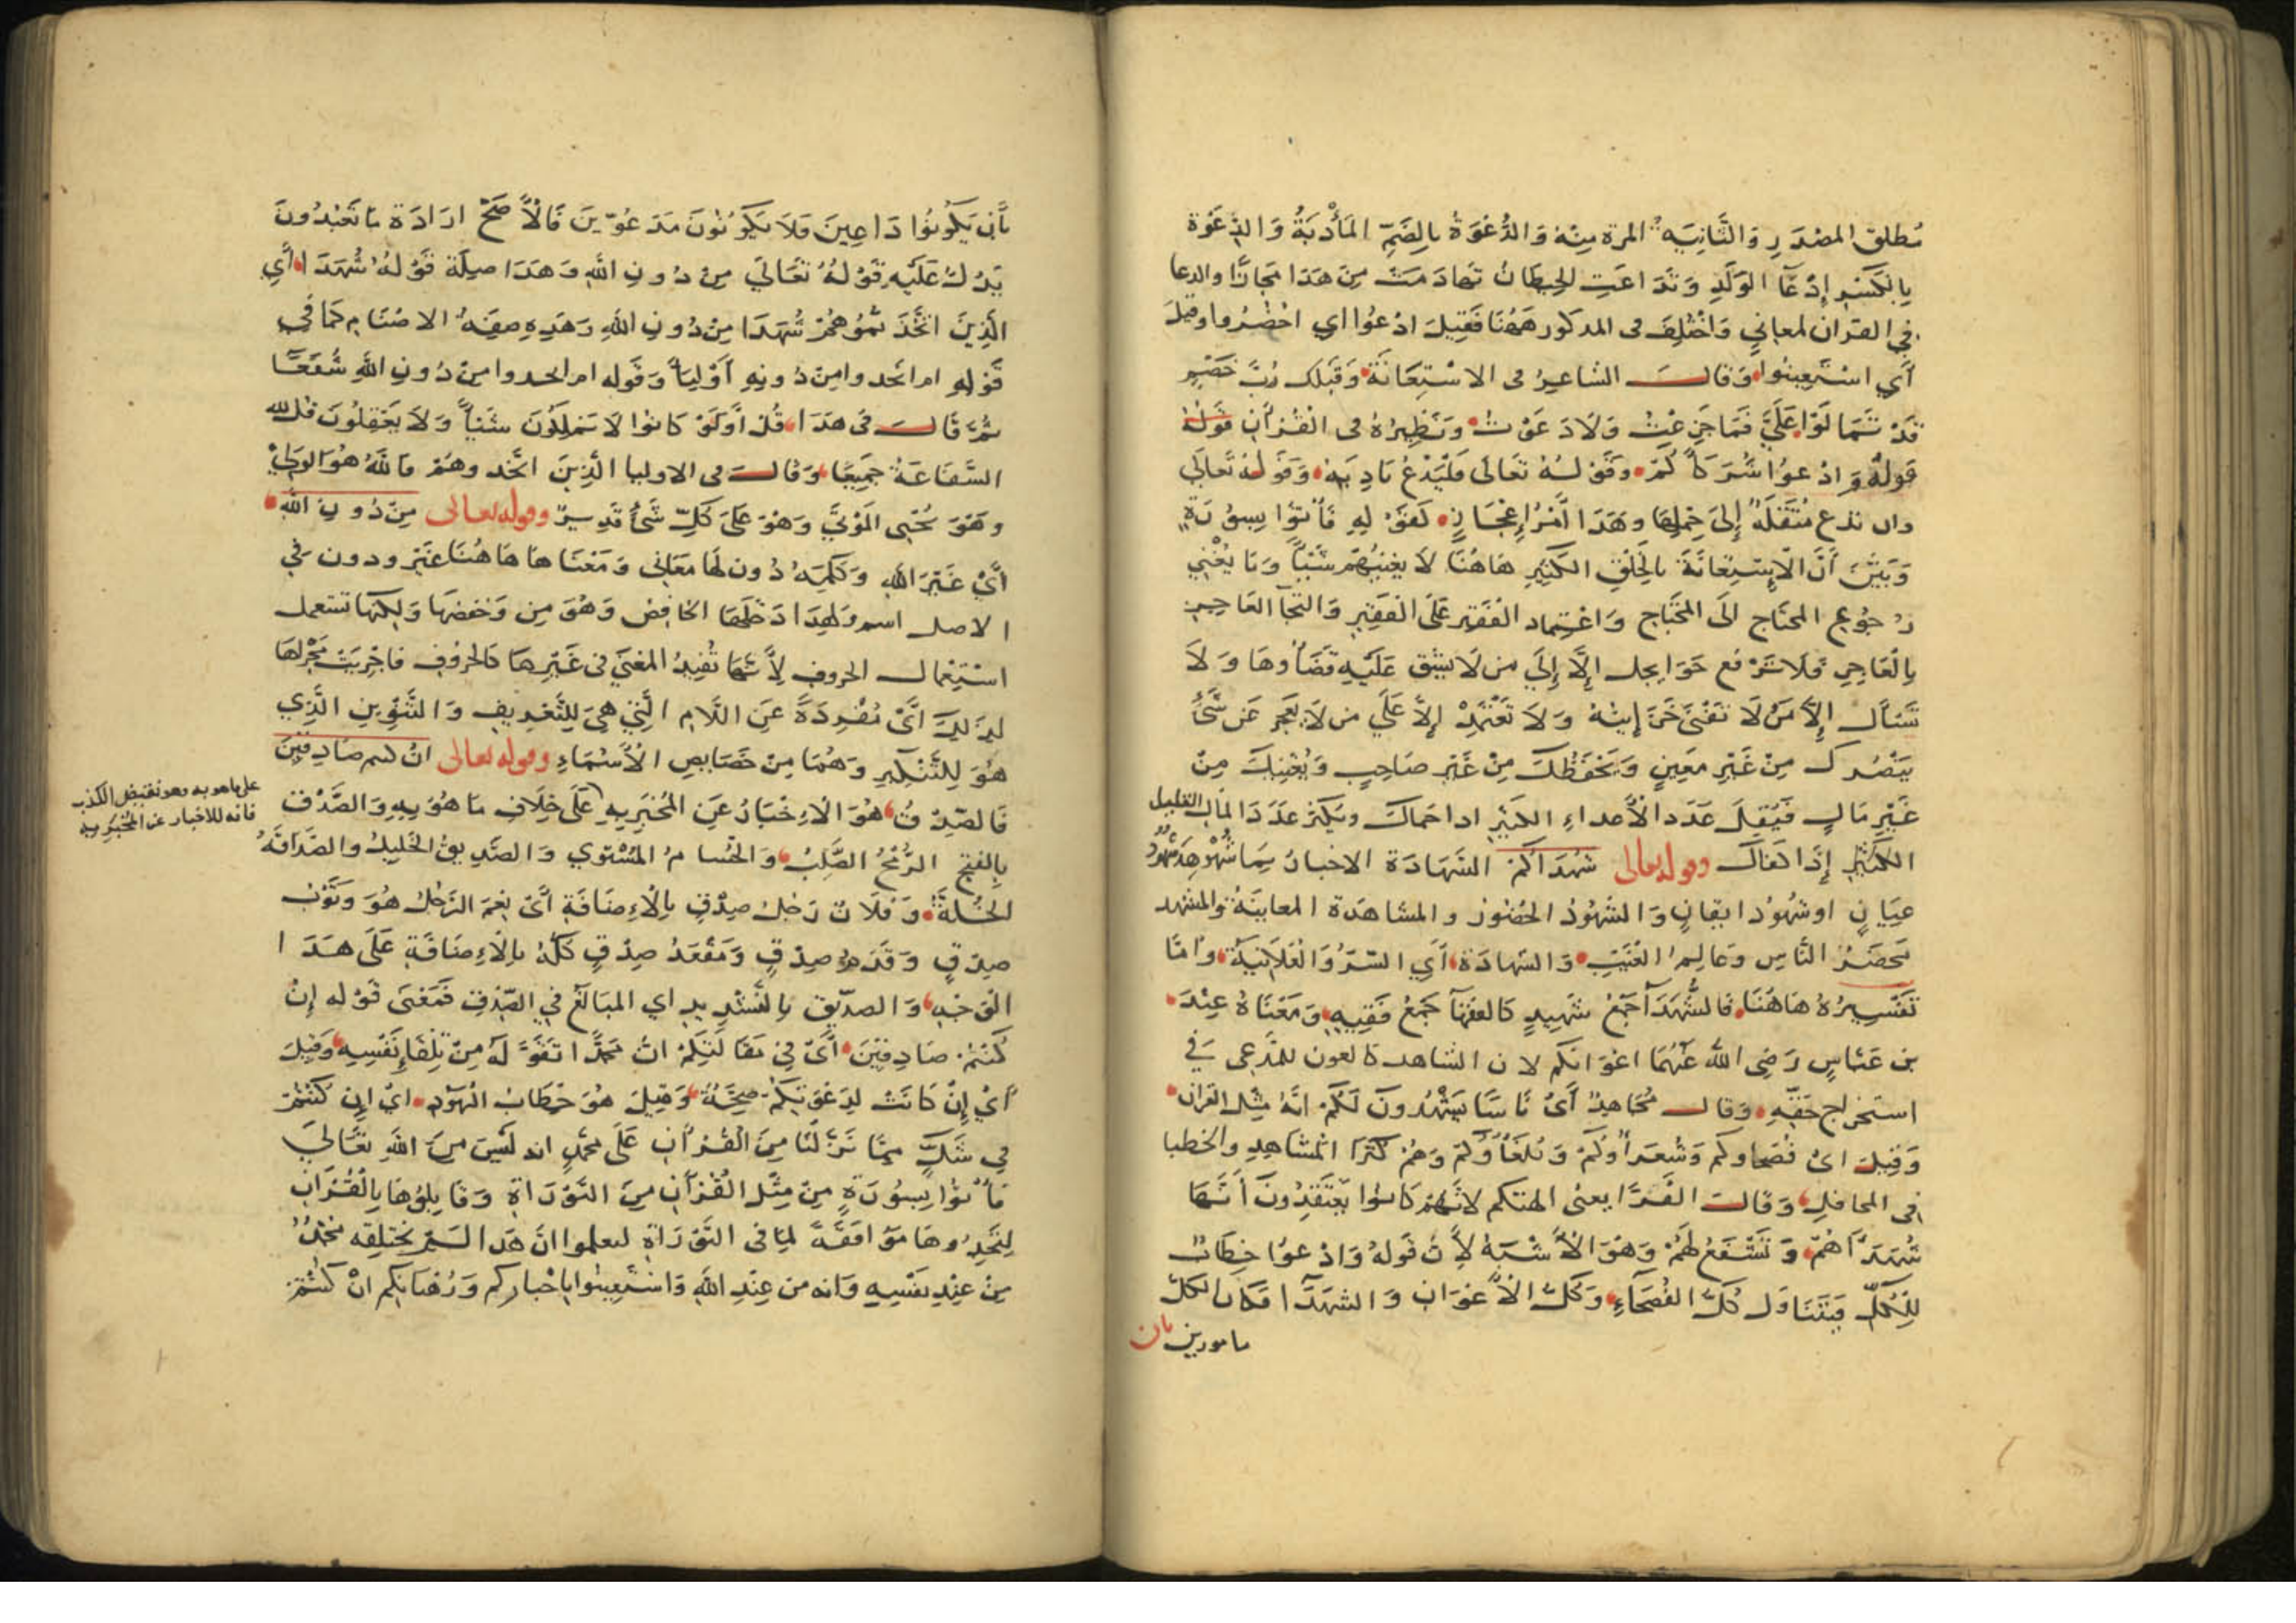 مُطلق المصْدَرِ وَالثَّانِيَة المرة مِنْهُ وَالدُّعْوَةُ بِالضَّمِّ المَأْدُبَةُ وَالدِّعْوَة
بِالكَسْرِ إِدْعَآ الوَلَدِ وَتَدَاعَتِ الحِيطَانُ تَهَادَمَتْ مِنْ هَذَا مَجَازًا والدعا
فِي القران لمعاني وَاخْتُلِفَ فى المذكور هَهُنَا فَقِيلَ ادْعُوا اي احْضُرُوا وقيلَ
أَي اسْتَعِينُوا وَقَالَ الشاعِرُ فى الاسْتِعَانَة وَقَبْلَك رُبَّ خَصْمٍ
قَدْ تَمَالَوْا عَلَيَّ فَمَا جَزِعْتُ وَلَا دَعَوْتُ وَنَظِيرُهُ فى الْقُرْآنِ قَوْلُهُ
قَولهُ وَادْعُوا شُرَكَآكُمْ وَقَوْلُهُ تَعَالَى فَلْيَدْعُ نَادِيَهُ وَقَولهُ تَعَالَي
وان تدع مُثْقَلَةٌ إِلَى حِمْلِهَا وهَذَا أَمْرُ إِعْجَازٍ كَقَوْلِهِ فَأْتُوا بِسُورَةٍ
وَبَيَّنَ أَنَّ الْاِسْتِعَانَةَ بِالخَلْقِ الكَثِيرِ هَاهُنَا لَا يغْنِيهِمْ شَيْئًا وَمَا يُغْنِي
رُجُوع المحتاج الَى المحْتَاج وَاعْتِماد الفَقِير عَلَى الفَقِيرِ وَالتجآ العَاجِز
بِالْعَاجِزِ فَلَا تَرْفَع حَوَايجك إِلَّا إِلَى من لَا يشُق عَلَيْهِ قَضَآؤهَا وَلَا
تَسْأَل إِلَّا مَنْ لَا تَفْنَى خَزَائِنُهُ وَلَا تَعْتَمِدْ إِلَّا عَلَي من لَا يَعْجز عَنْ شَيْءٍ
يَنْصُرك مِنْ غَيْرِ مُعِينٍ وَيَحْفَظُكَ مِنْ غَيْرِ صَاحِبٍ وَيُغْنِيكَ مِنْ
غَيْرِ مَالٍ فَيُقِلّ عَدَد الأَعداءِ الكَثِيْر اذا حَمَاكَ وَيُكْثِرُ عَدَدَ المَال القليل
الكَثِيْر إِذَا كَفَاكَ وقوله تعالى شُهَدَآكُمْ الشَهَادَة الاخبارُ بِمَا شُهِدَ شُهُودُ
عِيَانٍ او شُهُودَ ايقانٍ وَالشُهُودُ الحُضُورُ والمشاهَدة المعاينَة والمشهد
مَحْضَرُ النَّاسِ وَعَالِمُ الغَيْبِ وَالشهادَة أَي السِّرُّ وَالْعَلَانِيَة وامَّا
تَفْسِيرُهُ هَاهُنَا فَالشُّهَدَآ جَمْعُ شَهِيدٍ كَالفقهآ جَمْعُ فَقِيهٍ وَمَعْنَاهُ عِنْدَ
بن عَبَّاسٍ رَضِيَ اللَّهُ عَنْهُمَا اعْوَانَكم لان الشاهد كالعون للمدَّعى فِي
استخراج حَقّهِ وَقَالَ مُجَاهِدٌ أَي نَاسًا يَشْهَدُونَ لَكُمْ انَّهُ مِثْلُ القران
وَقِيلَ ايْ فُصَحاوكم وَشُعَرَآوُكُمْ وَبُلَغَآوكمْ وَهُمْ كُثَرَا المشاهدِ والخطبا
فى المحافل وَقَالَ الفَرَّا يعنى الهتكم لانَّهُمْ كَانوا يَعْتَقِدُونَ أَنَّهَا
شُهَدَآهُمْ وَتَشْفَعُ لَهُمْ وَهُوَ الأَشْبَهُ لِأَنَّ قَولهُ وَادْعُوا خِطَابٌ
لِلْكُلِّ فَيَتَنَاوَل كُلَّ الفُصَحَآءِ وَكُلَّ الْأَعْوَانِ وَالشهَدَآ فكان الكل
مامورين بان
بِأَنْ يَكُونُوا دَاعِينَ وَلَا يَكُونُونَ مَدْعُوّينَ فَالْأَصَحّ ارَادَة مَا تَعْبُدُونَ
يَدُلُّ عَلَيْهِ قَوْلُهُ تَعَالَى مِنْ دُونِ اللَّهِ وَهَذَا صِلَة قَوْلهُ شُهَدَا أَي
الَّذِينَ اتَّخَذْتُمُوهُمْ شُهَدَا مِنْ دُونِ اللَّهِ وَهَذِهِ صِفَةُ الاصْنَام كَمَا في
قَوْلِهِ ام اتخذوا مِنْ دُونِهِ أَوْلِيَآ وَقَوله ام اتخذوا مِنْ دُونِ اللَّهِ شُفَعَآ
ثُمَّ قَالَ فى هَذَا قُلْ أَوَلَوْ كَانوا لَا يَمْلِكُونَ شَيْئًا وَلَا يَعْقِلُونَ قل لله
الشَّفَاعَةُ جَمِيعًا وَقَالَ فى الاوليا الَّذِينَ اتَّخَذوهُمْ فَاللَّهُ هُوَ الوَلِيُّ
وهُوَ يُحْيِي المَوْتَى وَهُوَ عَلَى كُلِّ شَيْءٍ قَدِيرٌ وقوله تعالى مِنْ دُونِ اللَّهِ
أَيْ غَيْرَ اللَّهِ وَكَلِمَةُ دُون لَهَا مَعَانِى وَمَعْنَاهَا هَاهُنَا غَيْر ودون فِي
الاصل اسم وَلِهَذَا دَخَلَهَا الخَافِض وَهُوَ مِن وَخَفضَهَا وَلكِنَّهَا تستعمل
اسْتِعْمَال الحروف لِأَنَّهَا تُفِيدُ المعْنَى فى غَيْرِهَا كَالحُروفِ فاُجْرِيَتْ مَجْرَاهَا
لِذَلِكَ أَيْ مُفْرَدَةً عَنِ اللَّامِ الَّتِي هِيَ لِلتَّعْرِيفِ وَالتَّنْوِينِ الَّذِي
هُوَ لِلتَّنْكِيرِ وَهُمَا مِنْ خَصَايِصِ الْأَسْمَاءِ وقوله تعالى انْ كنتم صَادِقِينَ
فَالصِّدْقُ هُوَ الْاِخْبَارُ عَنِ المُخْبَرِ بِهِ عَلَى خِلَافِ مَا هُوَ بِهِ وَالصَّدْق
على ما هو به وهو نقيض الكذب
فانه للاخبار عن المخبر به
بِالفَتْحِ الرُّمْحُ الصُّلْبُ وَالحُسَامُ المُسْتَوِي وَالصَدِيقُ الخَلِيلُ والصَدَاقَةُ
الخُلَّةُ وَفُلَانٌ رَجُلُ صِدْقٍ بِالْاِضَافَةِ أَيْ نِعْمَ الرَّجُلُ هُوَ وَثَوْبُ
صِدْقٍ وَقَدَمُ صِدْقٍ وَمَقْعَدُ صِدْقٍ كُلّهُ بِالْاِضَافَةِ عَلَى هَذَا
الْوَجْهِ وَالصِدّيق بِالتَّشْدِيدِ اي المبَالِغُ فِي الصِّدْقِ فَمَعْنَى قَوْلِهِ إِنْ
كُنْتُمْ صَادِقِينَ أَيْ فِي مَقَالَتِكُمْ انّ مُحَمَّدًا تَقَوَّلَهُ مِنْ تِلْقَاءِ نَفْسِهِ وَقِيلَ
أَيْ إِنْ كَانَتْ لِدَعْوَتِكُمْ صِحَّةٌ وَقِيلَ هُوَ خِطَابُ اليَهُود اي ان كُنْتُمْ
فِي شَكٍّ مِمَّا نَزَّلْنَا مِنَ الْقُرْآنِ عَلَى مُحَمَّدٍ انه لَيْسَ مِنَ اللَّهِ تَعَالَى
فَأْتُوا بِسُورَةٍ مِنْ مِثْلِ الْقُرْآنِ مِنَ التَّوْرَاةِ وَقَابِلُوهَا بِالْقُرْآنِ
لِتَجِدُوهَا مُوَافَقَةً لِمَا فى التَّوْرَاةِ لتعلموا انَّ هَذا لَمْ يَخْتَلِقْهُ مُحَمَّدٌ
مِنْ عِنْدِ نَفْسِهِ وَانه من عِنْدِ اللَّهِ وَاسْتَعِينوا بِاحْبَاركم وَرُهْبَانِكم انْ كُنْتُمْ